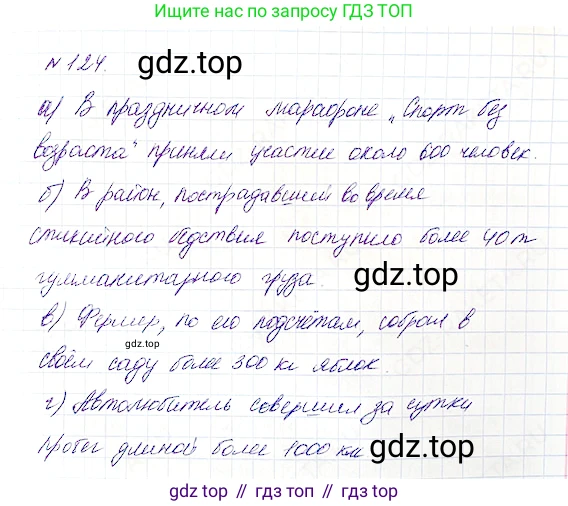 Ищите нас по запросу ГДЗ ТОП
№124. gdz.top
а) В праздничном марафоне „Спорт без
возраста" приняли участие около 600 человек.
б) В район, пострадавший во время
стихийного бедствия поступило более 40 т
гумманитарного груза. gdz.top
в) Фермер, по его подсчётам, собрал в
своём саду более 300 кг яблок.
г) Автолюбитель совершил за сутки
пробег длиной более 1000 км gdz.top
gdz.top // гдз топ // гдз.топ